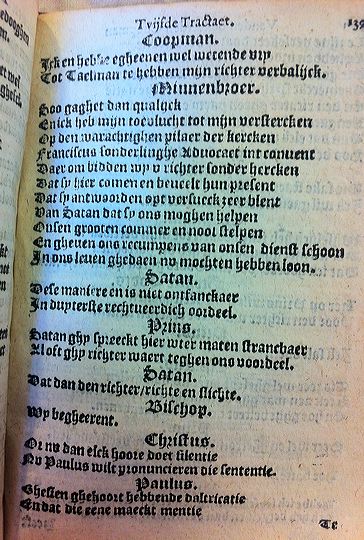 Tvijfde Tractaet. 139
Coopman.
Ick en hebbe egheenen wel wetende vry
Tot Taelman te hebben mijn richter verbalijck.
Minnenbroer.
Soo gaghet dan qualijck
En ick heb mijn toevlucht tot mijn verstercken
Op den warachtighen pilaer der kercken
Franciscus sonderlinghe Advocaet int convent
Daerom bidden wy v richter sonder hercken
Dat sy hier comen en beveelt hun present
Dat sy antwoorden opt versueck zeer blent
Van Satan dat sy ons moghen helpen
Onsen grooten commer en noot stelpen
En gheven ons recumpens van onsen dienst schoon
In ons leven ghedaen nv mochten hebben loon.
Satan.
Dese maniere en is niet ontfanckaer
In duyterste rechtveerdich oordeel.
Prins.
Satan ghy spreeckt hier weer maten stranckbaer
Al oft ghy richter waert teghen ons voordeel.
Satan.
Dat dan den richter/richte en slichte.
Bischop.
Wy begheerent.
Christus.
Or nv dan elck hoore doet silentie
Nv Paulus wilt pronuncieren die sententie.
Paulus.
Ghesien ghehoort hebbende dalricatie
En dat die eene maeckt mentie
Te